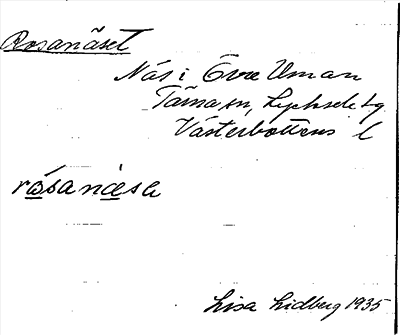 Rosanäset
Näs i Övre Uman
Tärna sn, Lycksele tg
Västerbottens l
råsanäsa
Lisa Lidberg 1935